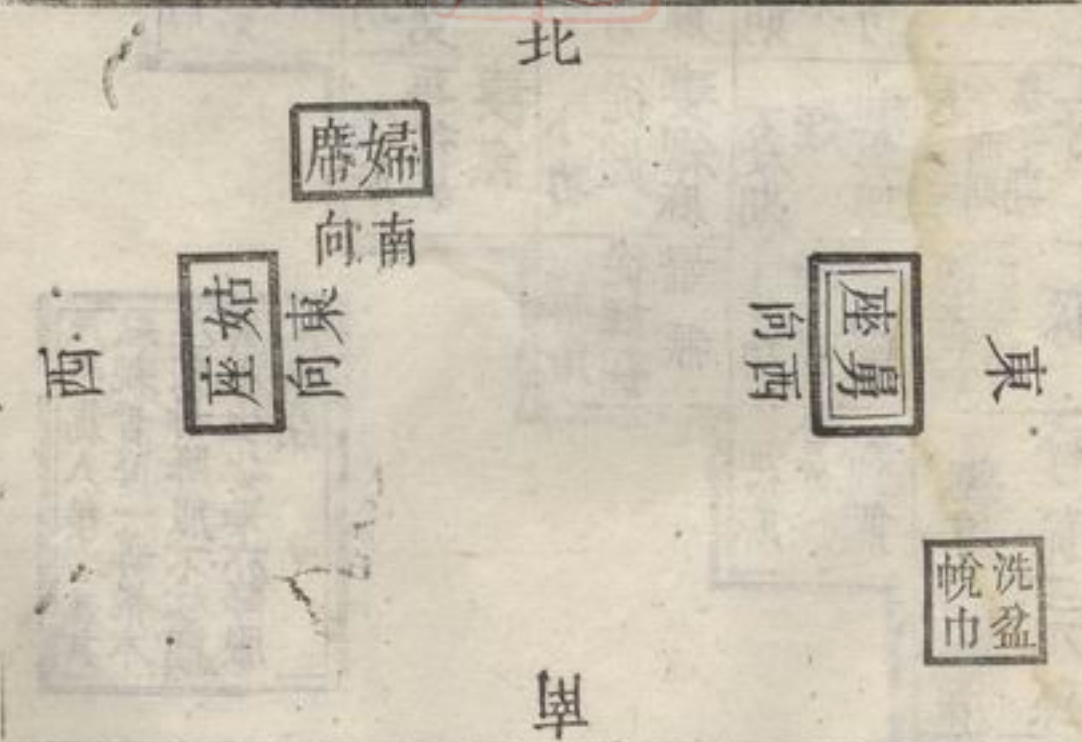 北
婦席
南向
姑座
東向
西
舅座
西向
東
洗盆
帨巾
南